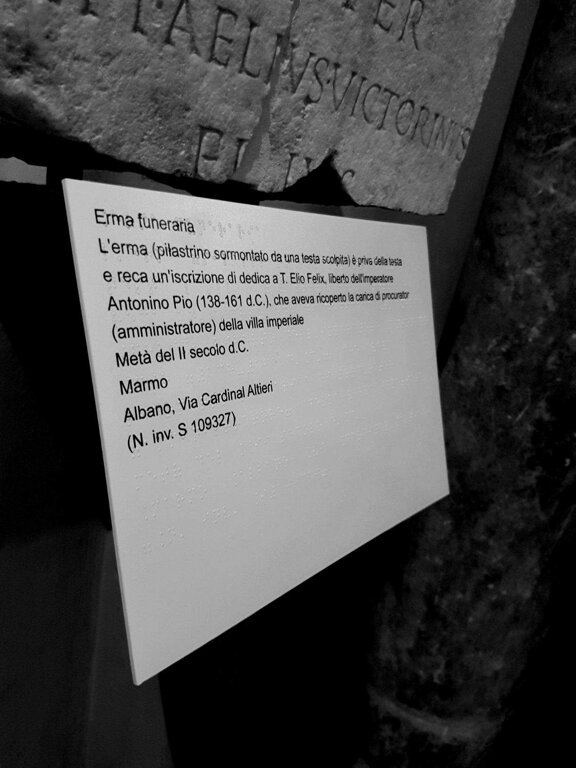 ER
T·AELIVS·VICTORINVS
Erma funeraria
L'erma (pilastrino sormontato da una testa scolpita) è priva della testa
e reca un'iscrizione di dedica a T. Elio Felix, liberto dell'imperatore
Antonino Pio (138-161 d.C.), che aveva ricoperto la carica di procurator
(amministratore) della villa imperiale
Metà del II secolo d.C.
Marmo
Albano, Via Cardinal Altieri
(N. inv. S 109327)